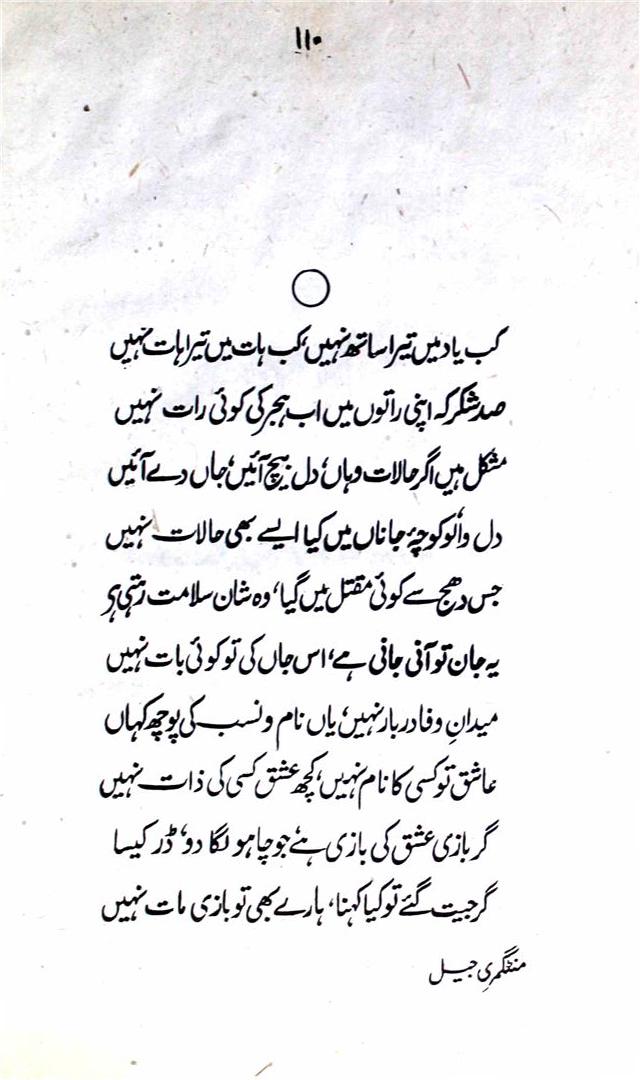 ۱۱۰
کب یاد میں تیرا ساتھ نہیں، کب ہات میں تیرا ہات نہیں
صد شکر کہ اپنی راتوں میں اب ہجر کی کوئی رات نہیں
مشکل ہیں اگر حالات وہاں، دل بیچ آئیں، جاں دے آئیں
دل والو کوچۂ جاناں میں کیا ایسے بھی حالات نہیں
جس دھج سے کوئی مقتل میں گیا، وہ شان سلامت رہتی ہے
یہ جان تو آنی جانی ہے، اس جاں کی تو کوئی بات نہیں
میدانِ وفا دربار نہیں، یاں نام و نسب کی پوچھ کہاں
عاشق تو کسی کا نام نہیں، کچھ عشق کسی کی ذات نہیں
گر بازی عشق کی بازی ہے، جو چاہو لگا دو، ڈر کیسا
گر جیت گئے تو کیا کہنا، ہارے بھی تو بازی مات نہیں
منٹگمری جیل